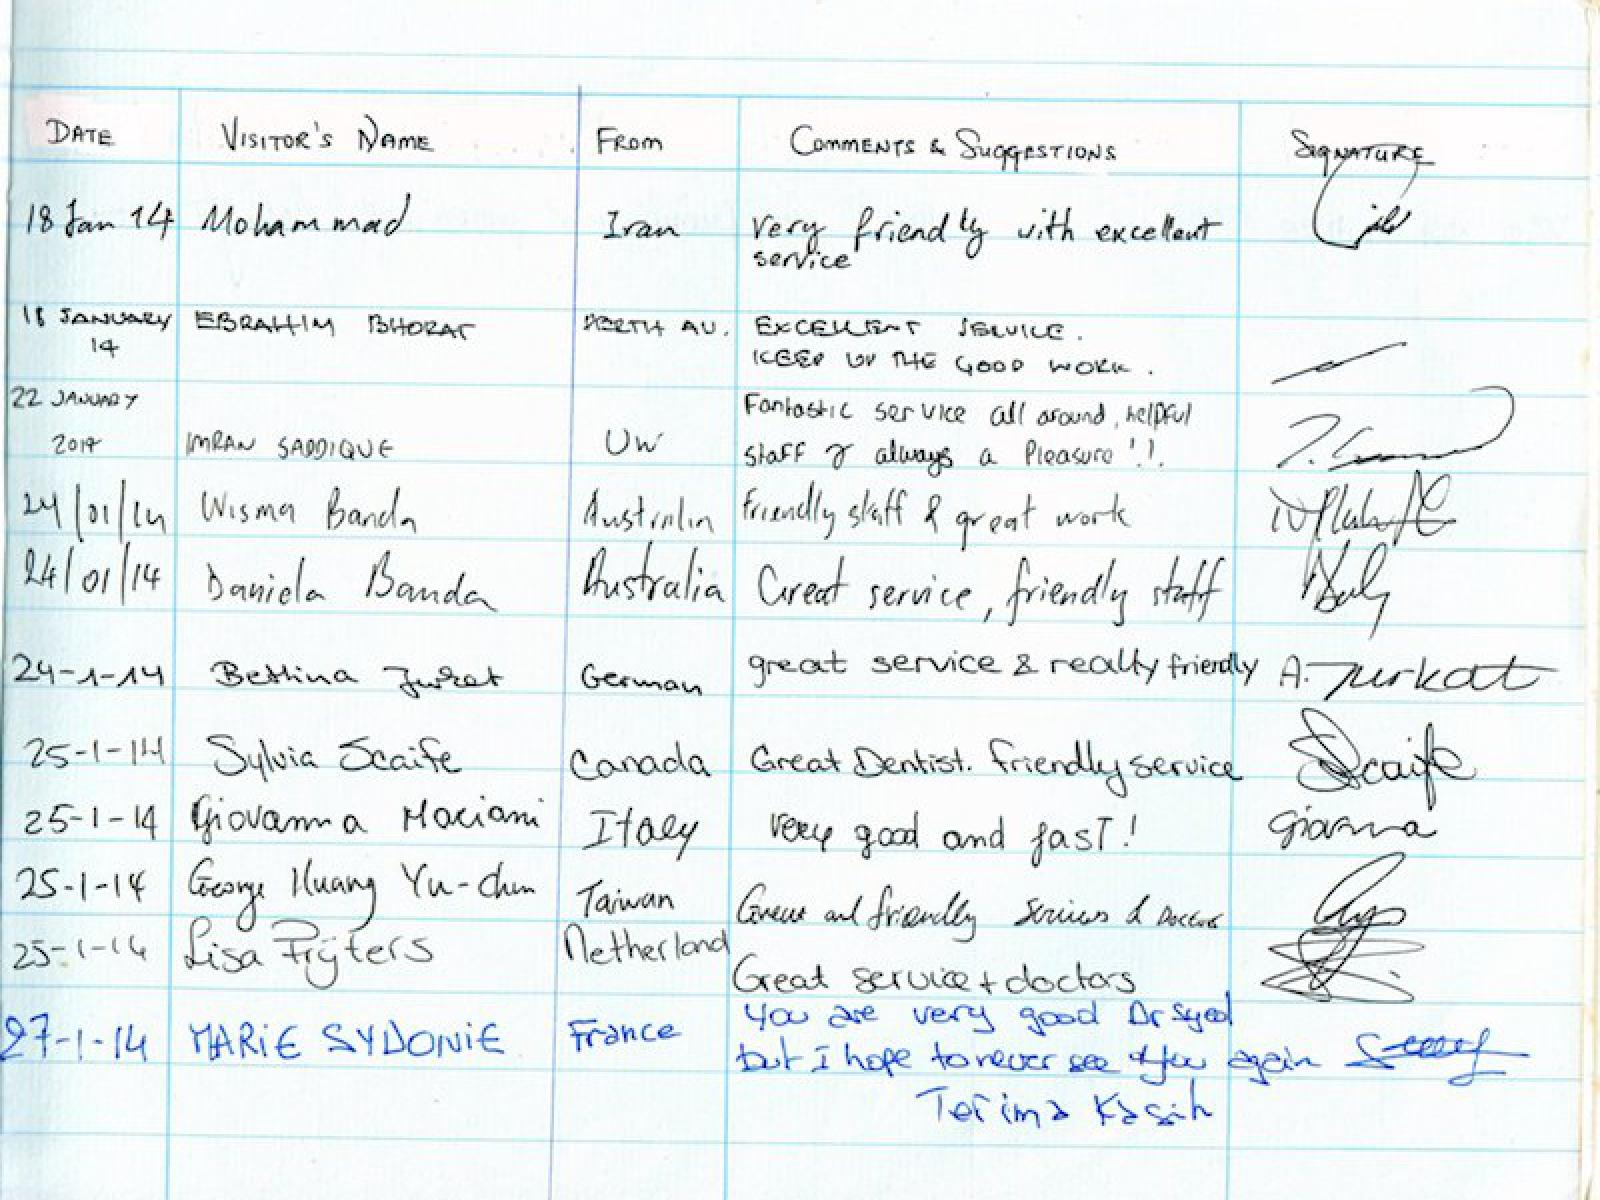 DATE VISITOR'S NAME FROM COMMENTS & SUGGESTIONS SIGNATURE
18 Jan 14 Mohammad Iran Very friendly with excellent
service
18 JANUARY EBRAHIM BHORAT PERTH AU. EXCELLENT SERVICE.
14 KEEP UP THE GOOD WORK.
22 JANUARY Fantastic service all around, helpful
2014 IMRAN SADDIQUE UK staff & always a Pleasure!!.
24/01/14 Wisma Banda Australia friendly staff & great work
24/01/14 Daniela Banda Australia Great service, friendly staff
24-1-14 Bettina Jurkat German great service & really friendly A. Jurkat
25-1-14 Sylvia Scaife Canada Great Dentist. Friendly service Scaife
25-1-14 Giovanna Maciani Italy very good and fast! giovanna
25-1-14 George Huang Yu-chun Taiwan and friendly & Doctor
25-1-14 Lisa Frijters Netherland Great service + doctors
27-1-14 MARIE SYDONIE France You are very good Dr Syed
but I hope to never see you again
Terima Kasih